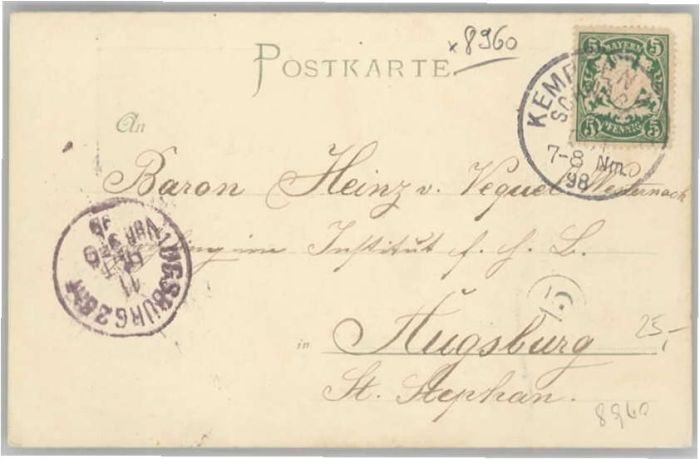 x 8960
POSTKARTE
5 BAYERN 5
5 PFENNIG 5
KEMPTEN
SCHW
7-8 Nm.
98
An
Baron Heinz v. Vequel-Westernach
im Institut f. h. L.
AUGSBURG
11
VOR
98
15
in Augsburg
25,-
St. Stephan.
8960